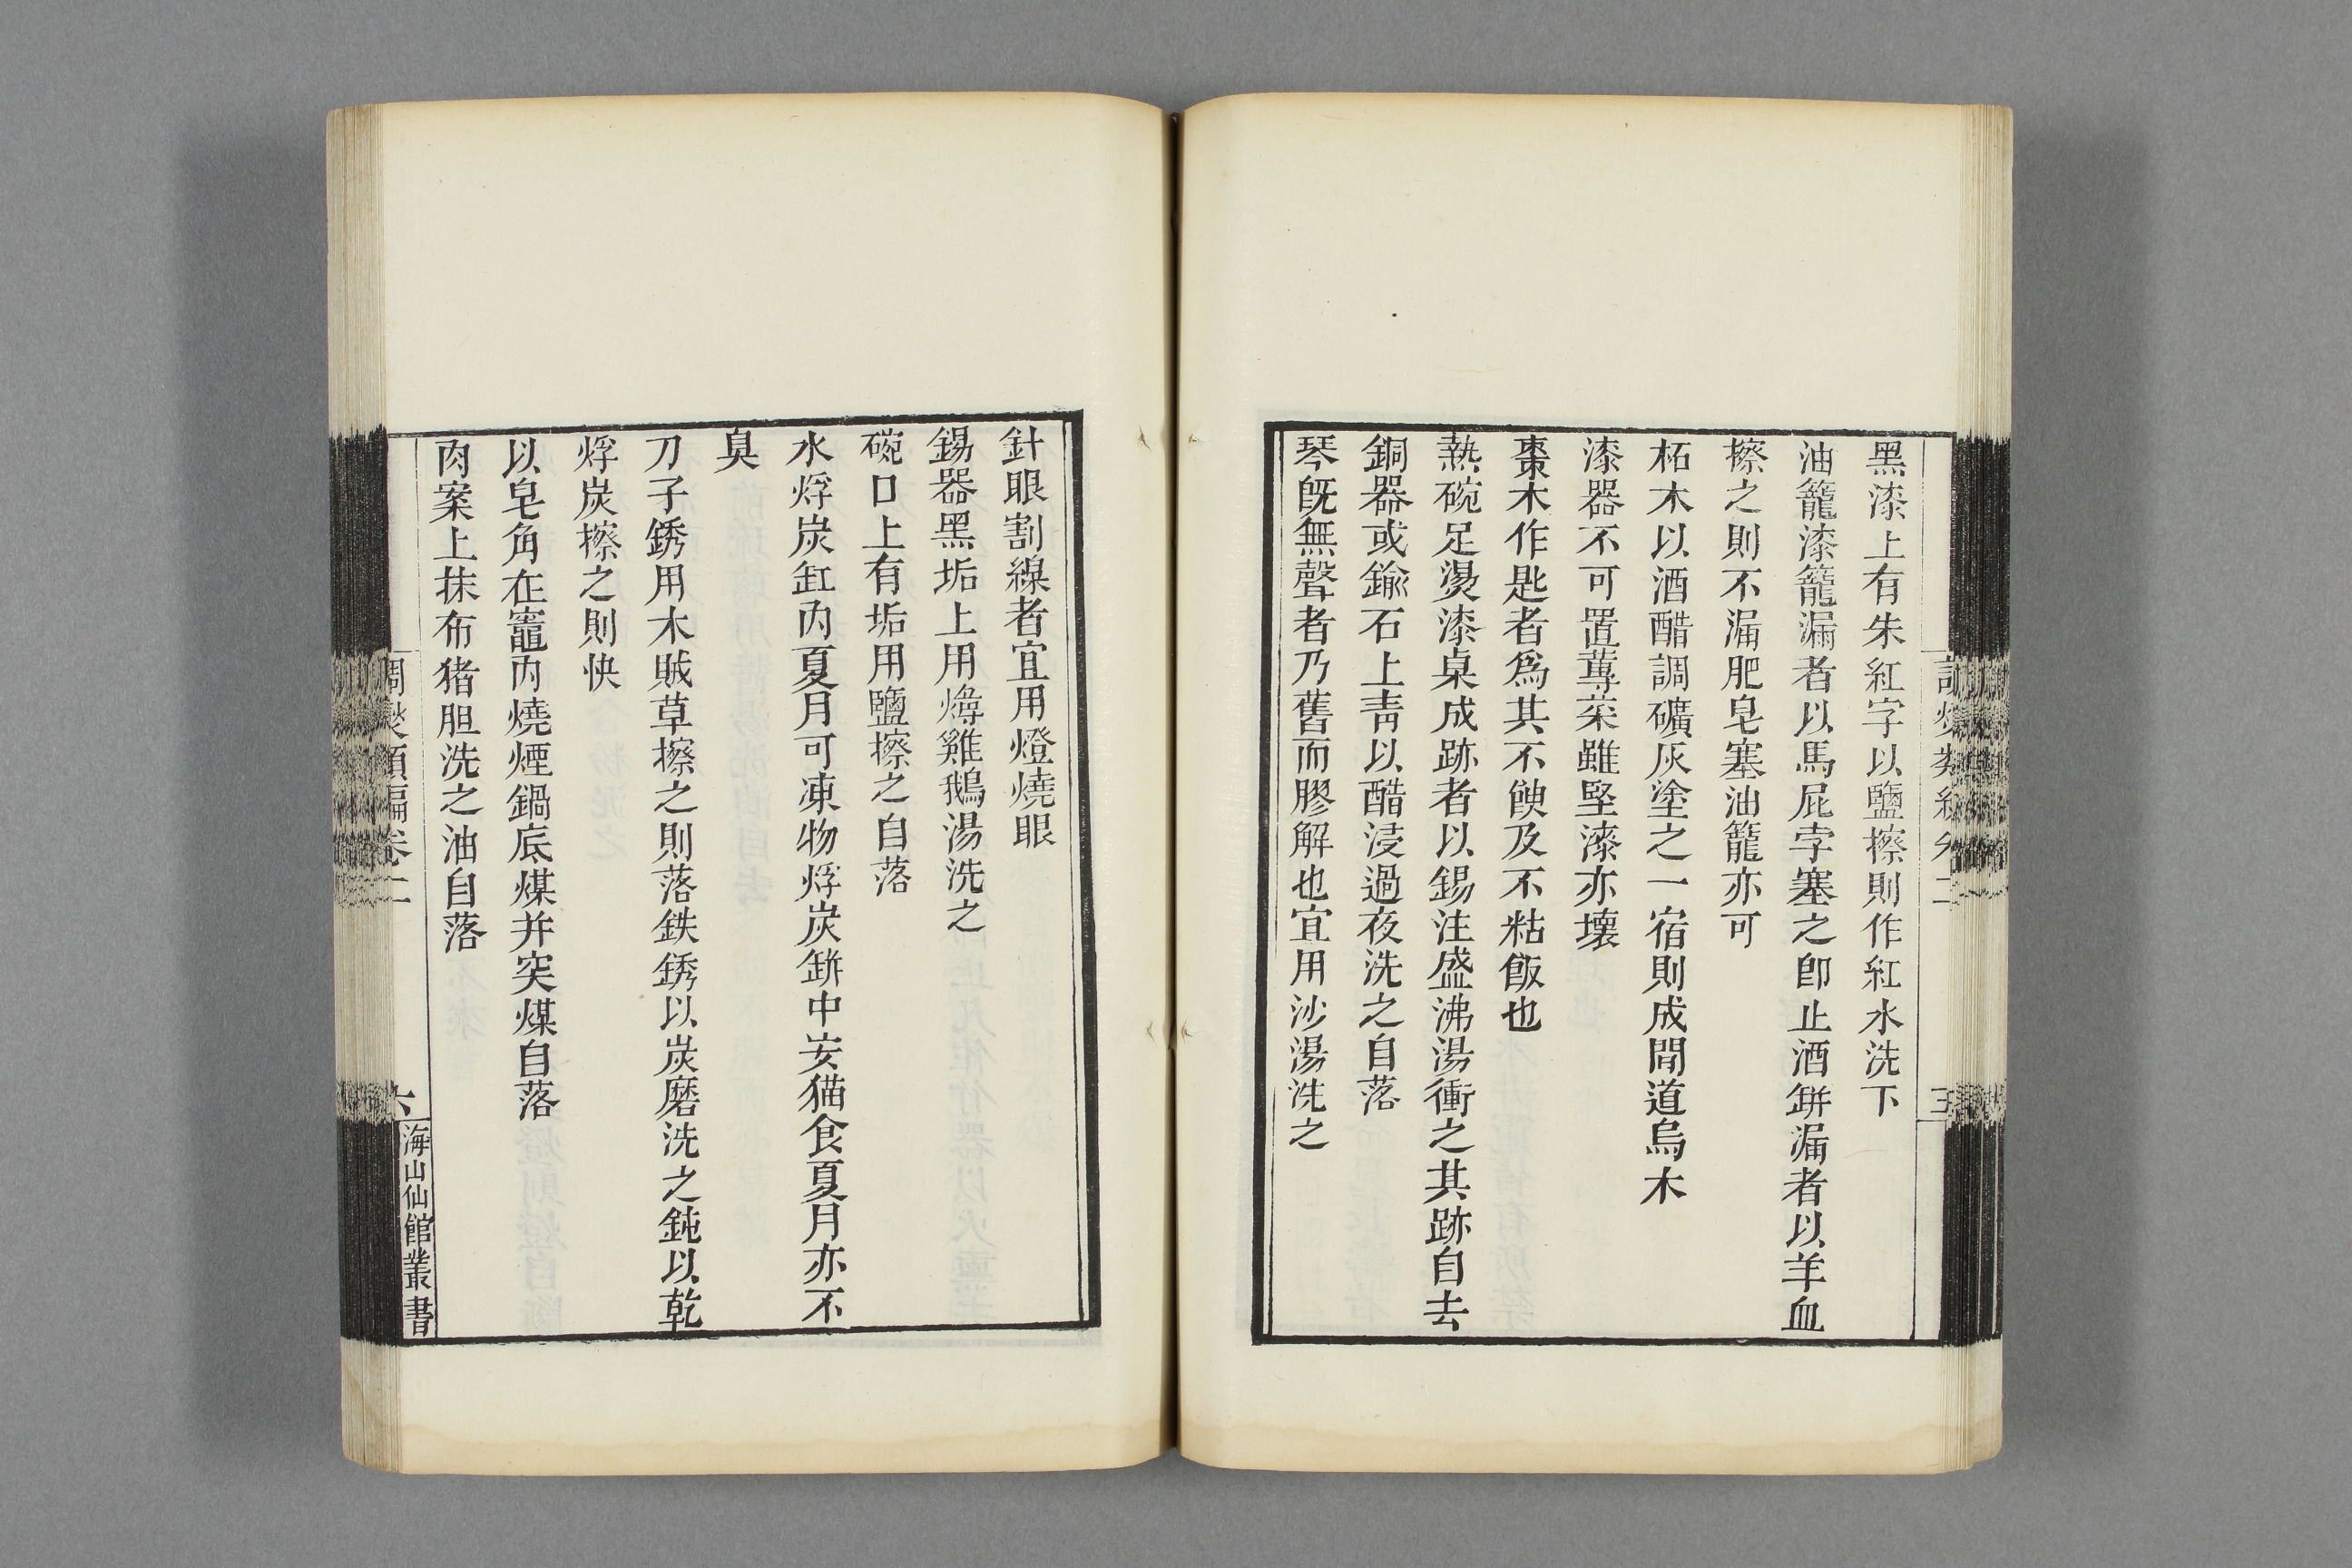 黑漆上有朱紅字以鹽擦則作紅水洗下
油籠漆籠漏者以馬屁孛塞之卽止酒缾漏者以羊血
擦之則不漏肥皂塞油籠亦可
柘木以酒醋調礦灰塗之一宿則成間道烏木
漆器不可置蓴菜雖堅漆亦壞
棗木作匙者爲其不餿及不粘飯也
熱碗足燙漆桌成跡者以錫注盛沸湯衝之其跡自去
銅器或鍮石上青以醋浸過夜洗之自落
琴旣無聲者乃舊而膠解也宜用沙湯洗之
針眼割線者宜用燈燒眼
錫器黑垢上用燖雞鵝湯洗之
碗口上有垢用鹽擦之自落
水烰炭缸內夏月可凍物烰炭缾中安猫食夏月亦不
臭
刀子銹用木賊草擦之則落鉄銹以炭磨洗之鈍以乾
烰炭擦之則快
以皂角在竈內燒煙鍋底煤并突煤自落
肉案上抹布猪胆洗之油自落
調燮類編卷二
六
海山仙館叢書